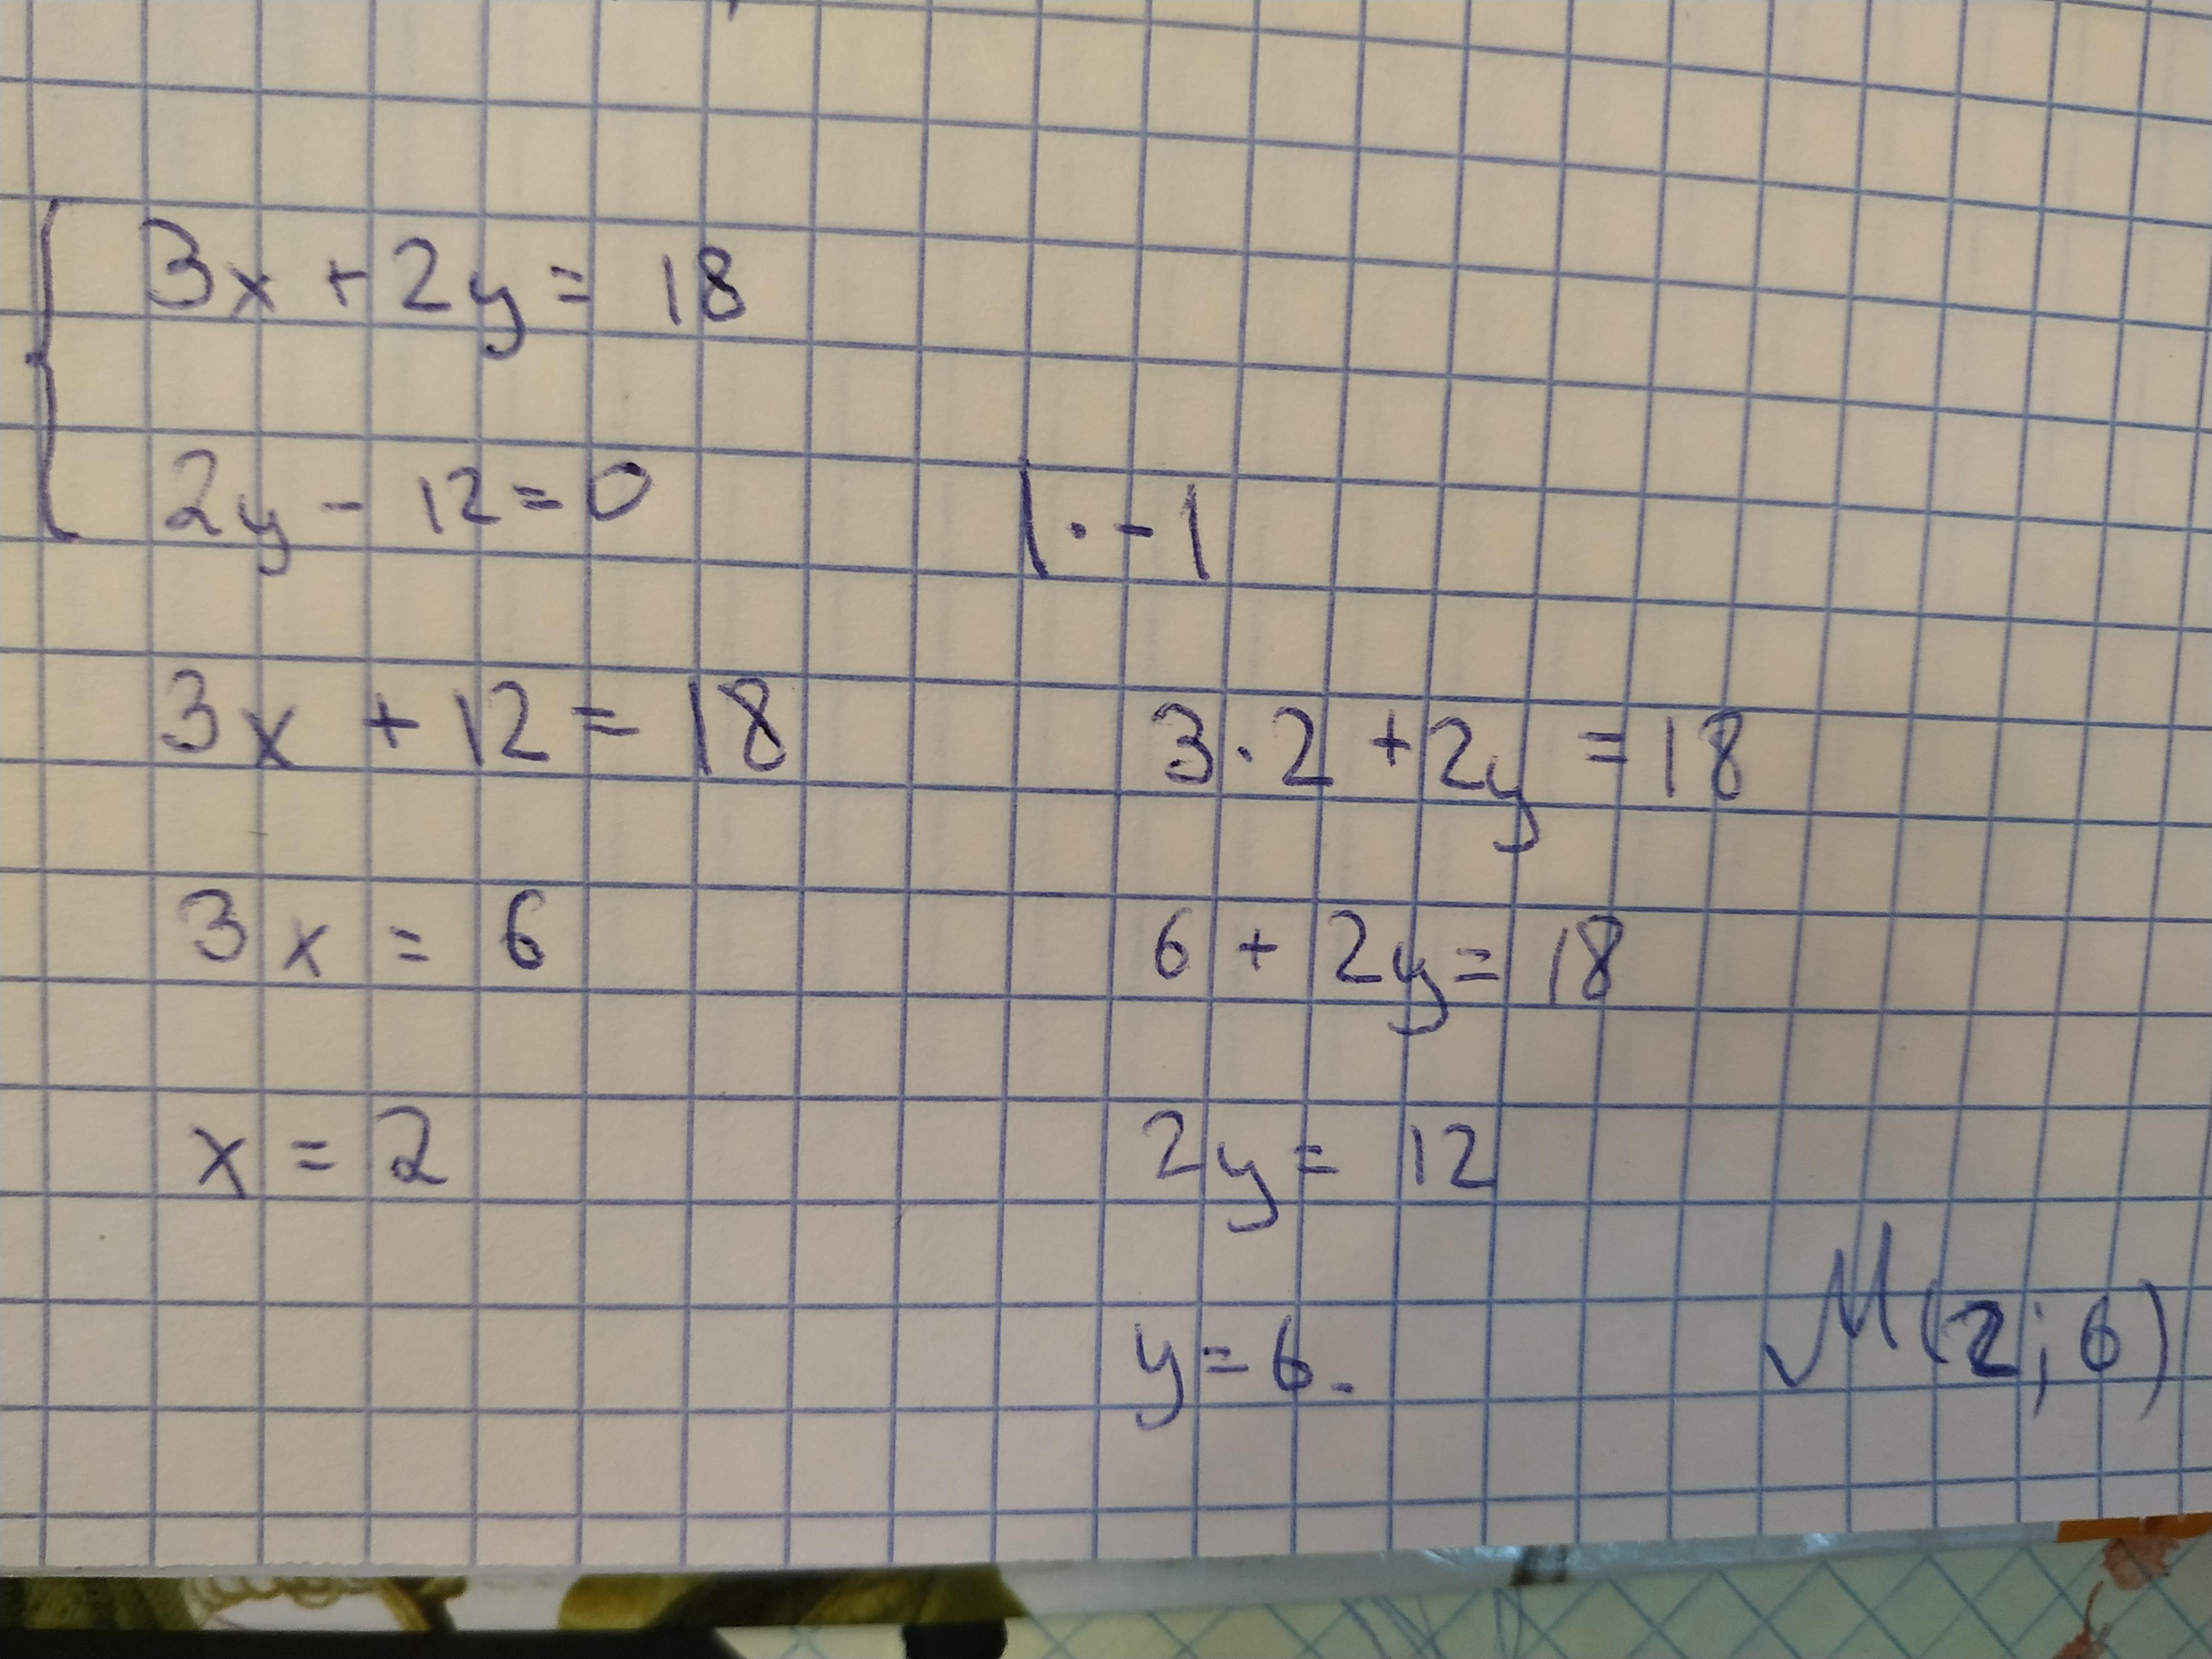 3x + 2y = 18
2y - 12 = 0 | · -1
3x + 12 = 18
3x = 6
x = 2
3 · 2 + 2y = 18
6 + 2y = 18
2y = 12
y = 6.
M(2; 6)